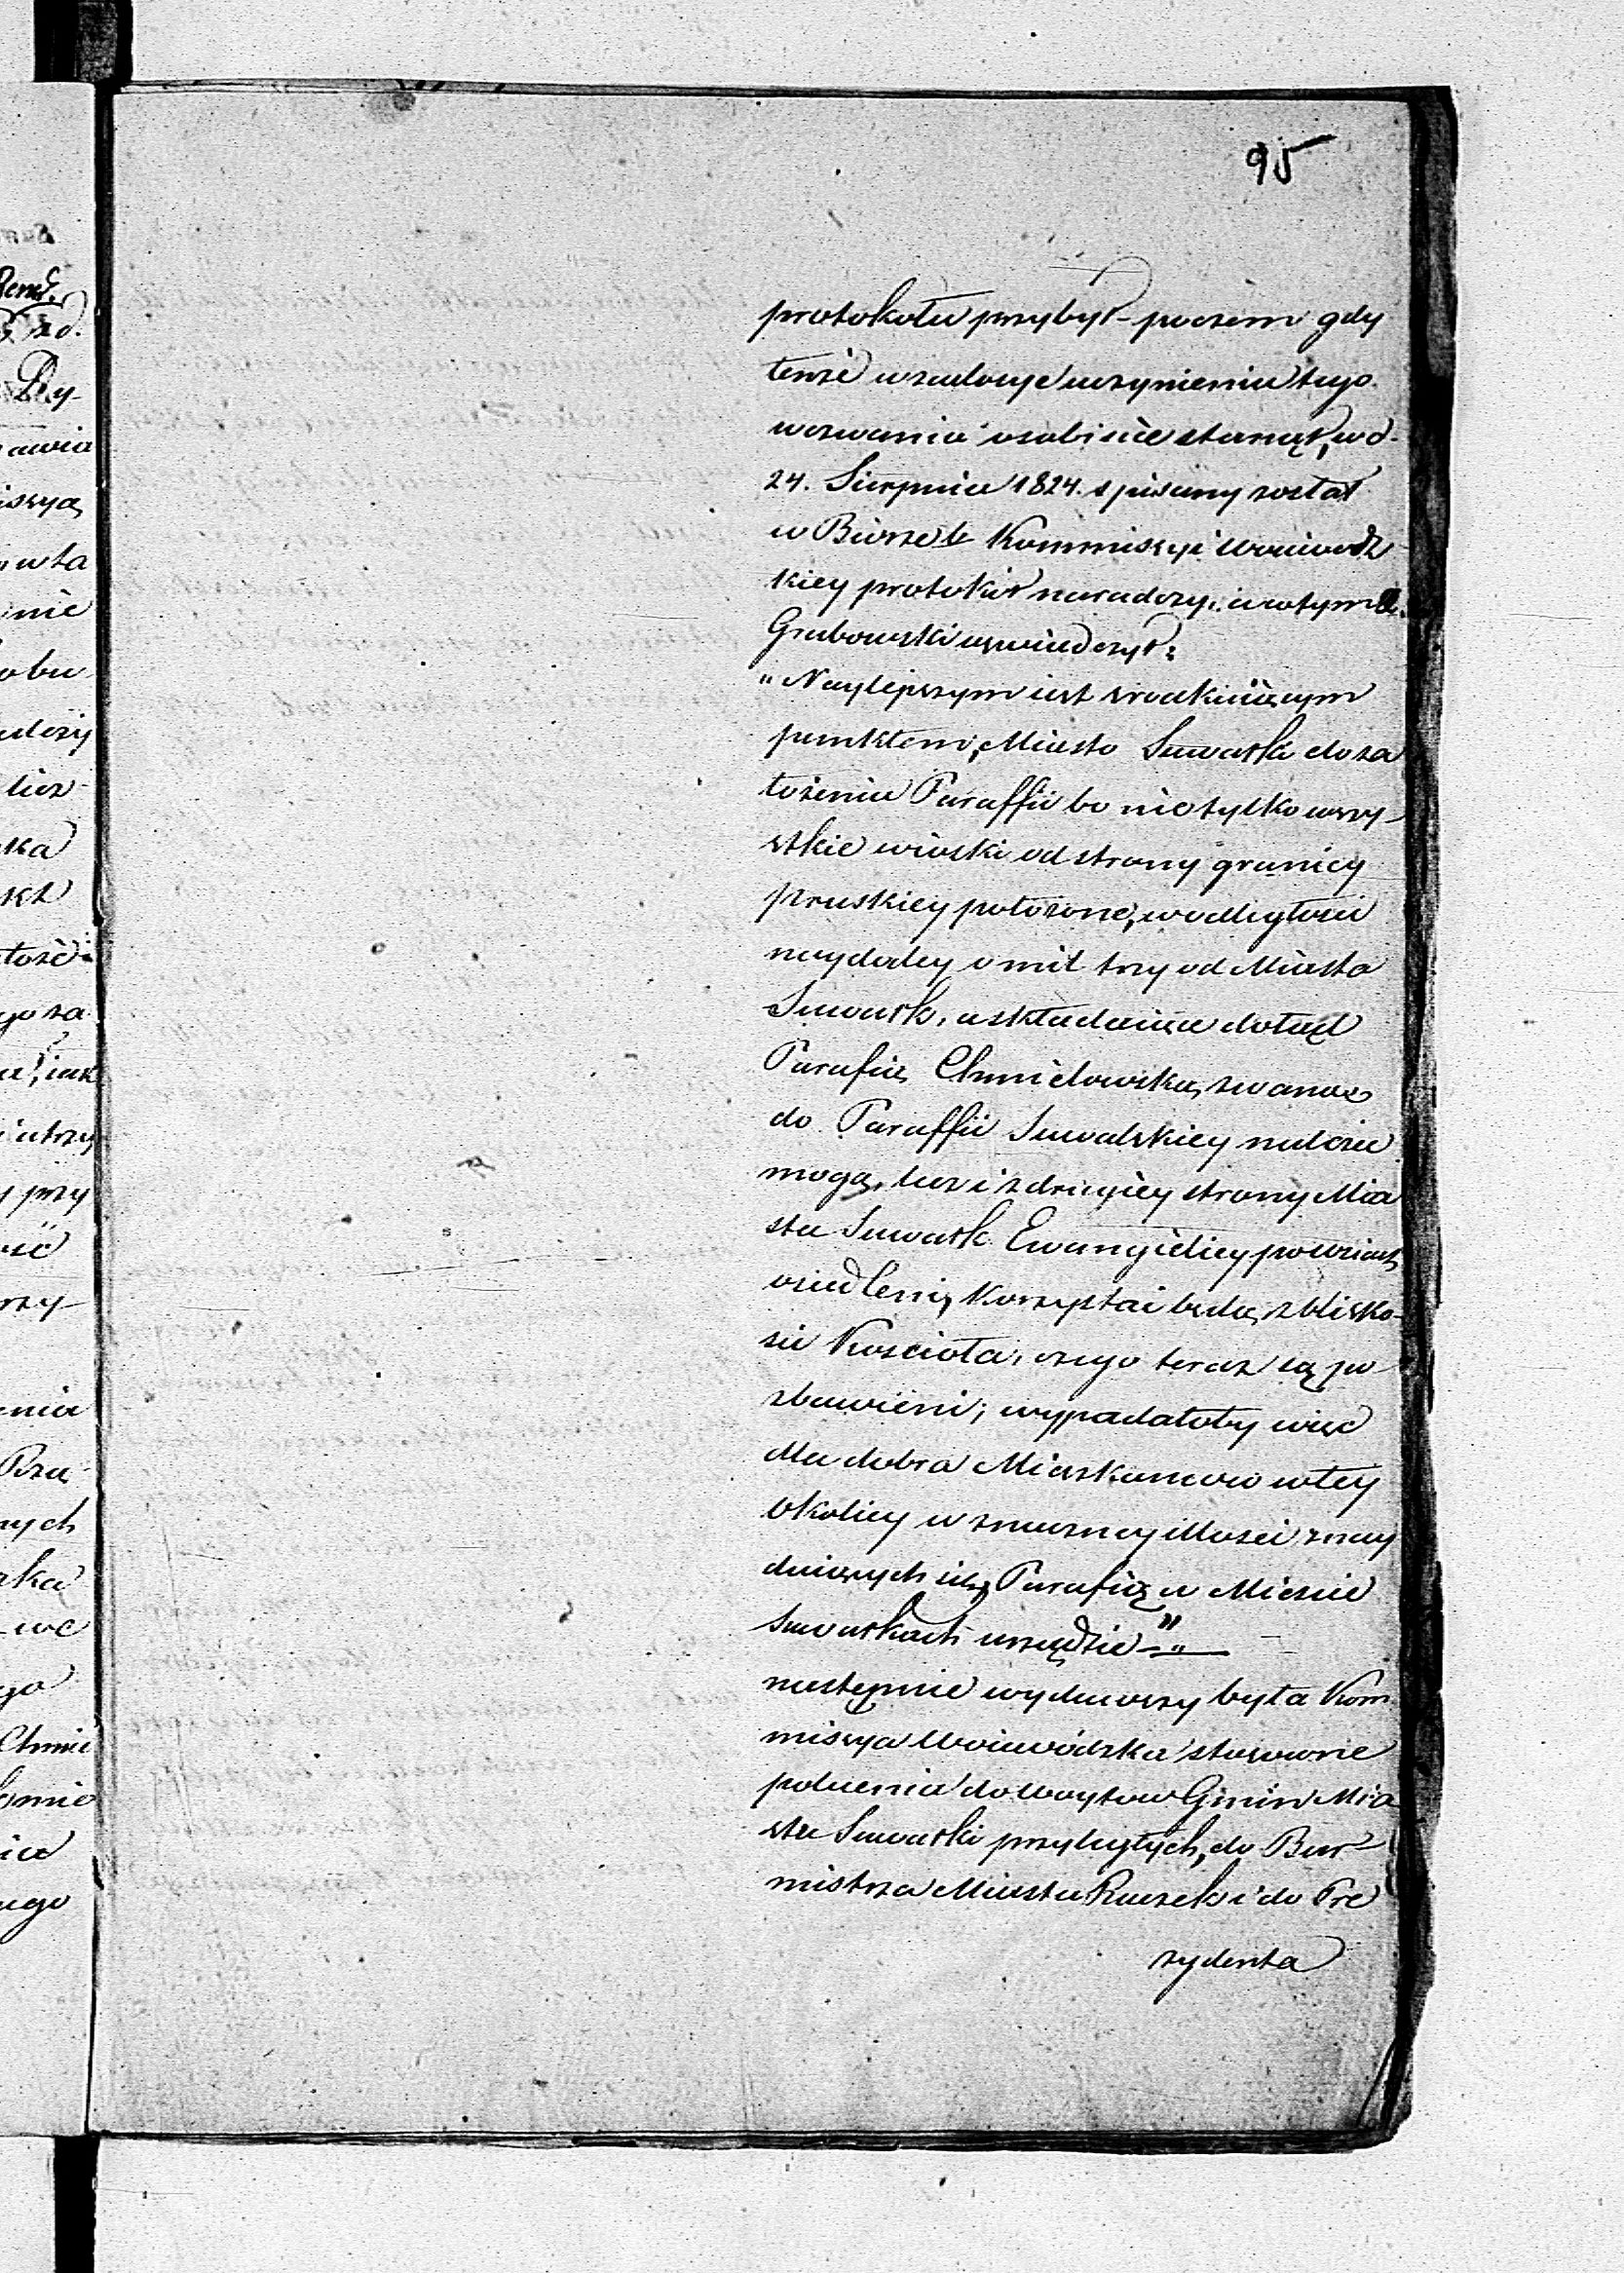 95
protokołu przybył – poczem gdy
tenże w zadosyć uczynieniu tego
wezwania osobiście stanął, w d.
24. Sierpnia 1824. spisany został
w Biurze b. Kommissyi Woiewódz
kiey protokół naradczy, a w tym
Grabowski uświadczył:
„Naylepszym iest środkuiącym
punktem, Miasto Suwałki do za
łożenia Paraffii bo nie tylko wszy-
stkie wioski od strony granicy
pruskiey położone, w odległości
naydaley o mil trzy od Miasta
Suwałk, a składaiące dotąd
Parafię Chmielowską zwaną
do Paraffii Suwalskiey należeć
mogą, lecz i z drugiey strony Mia
sta Suwałk Ewangielicy
osiedleni, korzystać będą z blisko-
ści Kościoła, czego teraz są po-
zbawieni; wypadałoby więc
dla dobra Mieszkancow w tey
okolicy w znaczney illości znay
duiących się, Parafią w Mieście
Suwałkach urządzić –"„
następnie wydawszy była Kom
missya Woiewódzka stosowne
polecenia do Woytow Gmin Mia
sta Suwałki przyległych, do Bur-
mistrza Miasta Raczek i do Pre
zydenta
Rend.
zd.
awia
wta
nie
obu
licz
yo za
iak
przy
rzy-
nia
ych
we
go
Chmie
ugo